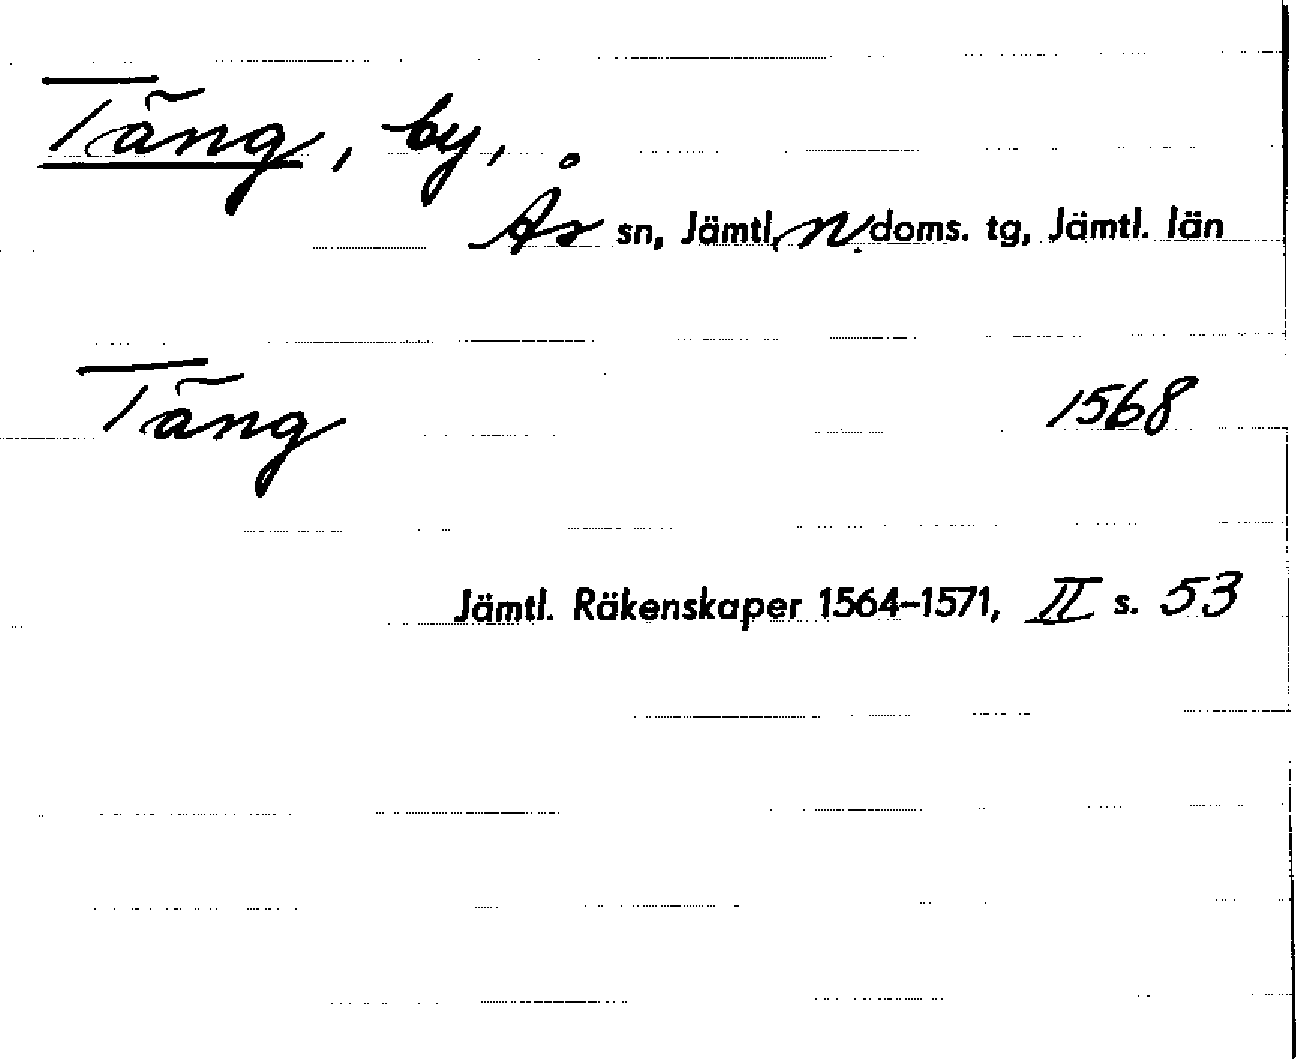 Täng, by,
Ås sn, Jämtl. N. doms. tg, Jämtl. län
Täng 1568
Jämtl. Räkenskaper 1564–1571, II s. 53